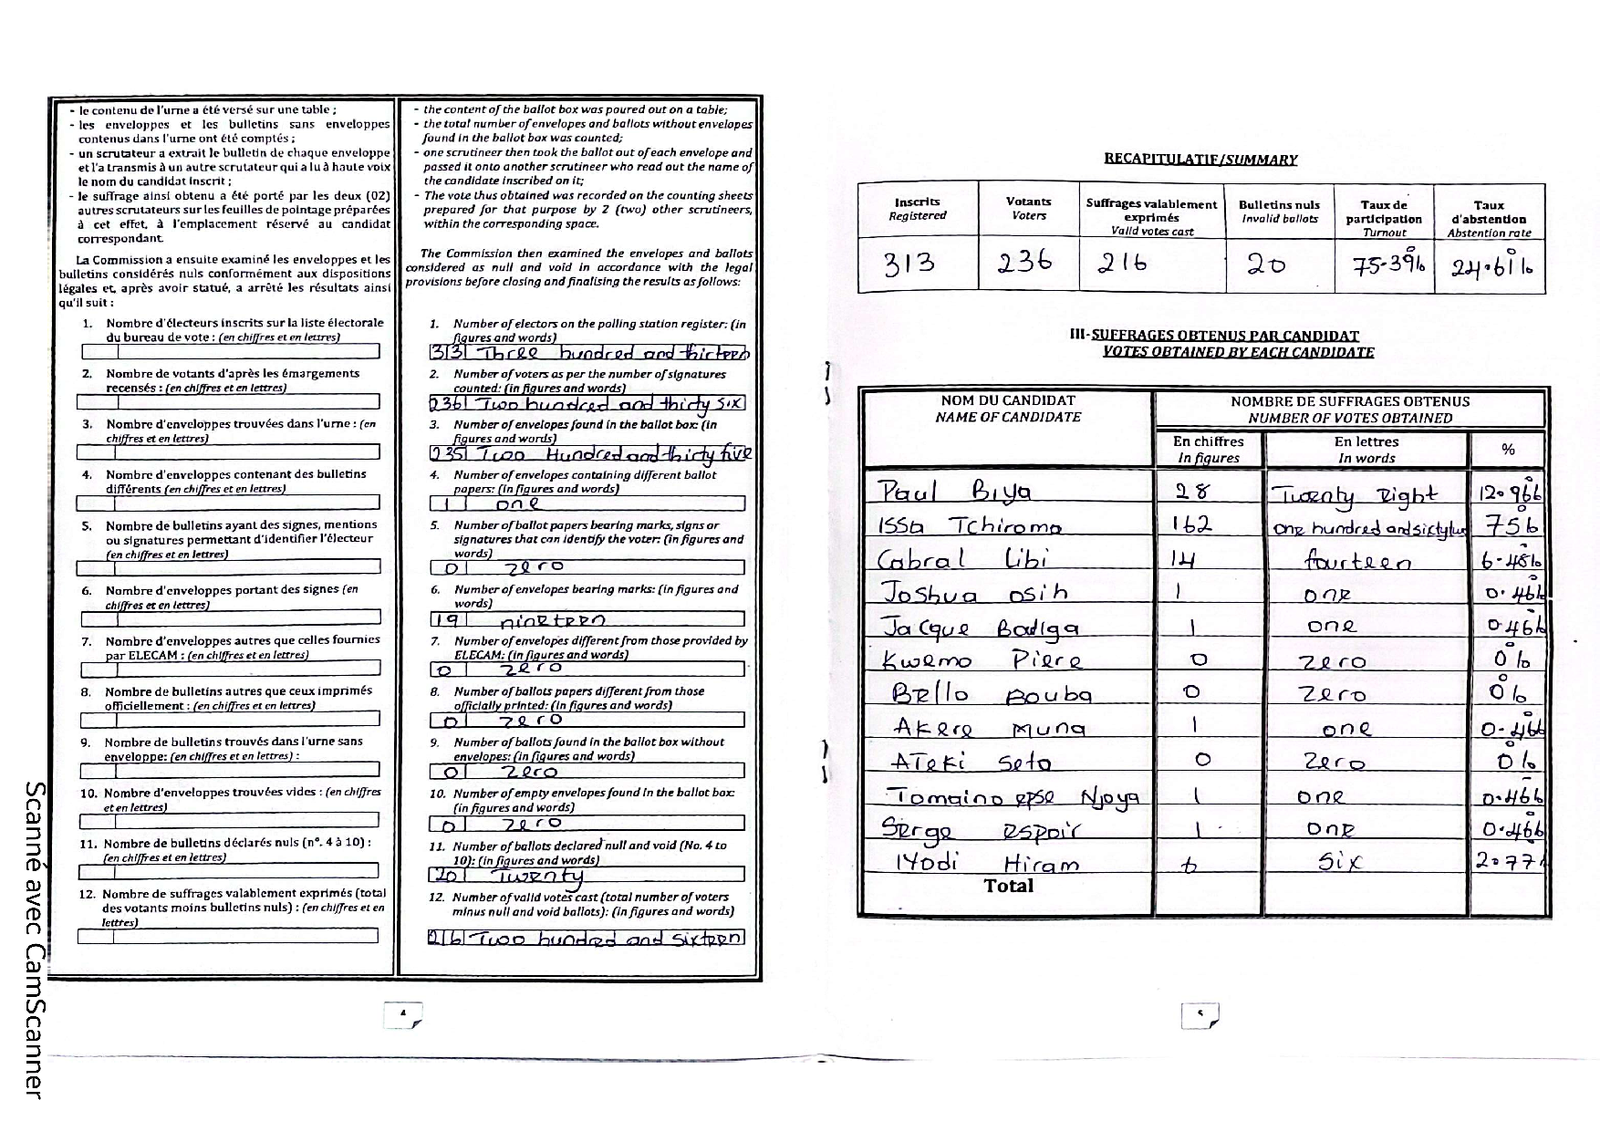 - le contenu de l'urne a été versé sur une table ;
- les enveloppes et les bulletins sans enveloppes
contenus dans l'urne ont été comptés ;
- un scrutateur a extrait le bulletin de chaque enveloppe
et l'a transmis à un autre scrutateur qui a lu à haute voix
le nom du candidat inscrit ;
- le suffrage ainsi obtenu a été porté par les deux (02)
autres scrutateurs sur les feuilles de pointage préparées
à cet effet, à l'emplacement réservé au candidat
correspondant.
La Commission a ensuite examiné les enveloppes et les
bulletins considérés nuls conformément aux dispositions
légales et, après avoir statué, a arrêté les résultats ainsi
qu'il suit :
1. Nombre d'électeurs inscrits sur la liste électorale
du bureau de vote : (en chiffres et en lettres)
2. Nombre de votants d'après les émargements
recensés : (en chiffres et en lettres)
3. Nombre d'enveloppes trouvées dans l'urne : (en
chiffres et en lettres)
4. Nombre d'enveloppes contenant des bulletins
différents (en chiffres et en lettres)
5. Nombre de bulletins ayant des signes, mentions
ou signatures permettant d'identifier l'électeur
(en chiffres et en lettres)
6. Nombre d'enveloppes portant des signes (en
chiffres et en lettres)
7. Nombre d'enveloppes autres que celles fournies
par ELECAM : (en chiffres et en lettres)
8. Nombre de bulletins autres que ceux imprimés
officiellement : (en chiffres et en lettres)
9. Nombre de bulletins trouvés dans l'urne sans
enveloppe: (en chiffres et en lettres) :
10. Nombre d'enveloppes trouvées vides : (en chiffres
et en lettres)
11. Nombre de bulletins déclarés nuls (n°. 4 à 10) :
(en chiffres et en lettres)
12. Nombre de suffrages valablement exprimés (total
des votants moins bulletins nuls) : (en chiffres et en
lettres)
- the content of the ballot box was poured out on a table;
- the total number of envelopes and ballots without envelopes
found in the ballot box was counted;
- one scrutineer then took the ballot out of each envelope and
passed it onto another scrutineer who read out the name of
the candidate inscribed on it;
- The vote thus obtained was recorded on the counting sheets
prepared for that purpose by 2 (two) other scrutineers,
within the corresponding space.
The Commission then examined the envelopes and ballots
considered as null and void in accordance with the legal
provisions before closing and finalising the results as follows:
1. Number of electors on the polling station register: (in
figures and words)
313 Three hundred and thirteen
2. Number of voters as per the number of signatures
counted: (in figures and words)
236 Two hundred and thirty six
3. Number of envelopes found in the ballot box: (in
figures and words)
235 Two Hundred and thirty five
4. Number of envelopes containing different ballot
papers: (in figures and words)
1 one
5. Number of ballot papers bearing marks, signs or
signatures that can identify the voter: (in figures and
words)
0 zero
6. Number of envelopes bearing marks: (in figures and
words)
19 nineteen
7. Number of envelopes different from those provided by
ELECAM: (in figures and words)
0 zero
8. Number of ballots papers different from those
officially printed: (in figures and words)
0 zero
9. Number of ballots found in the ballot box without
envelopes: (in figures and words)
0 zero
10. Number of empty envelopes found in the ballot box:
(in figures and words)
0 zero
11. Number of ballots declared null and void (No. 4 to
10): (in figures and words)
20 Twenty
12. Number of valid votes cast (total number of voters
minus null and void ballots): (in figures and words)
216 Two hundred and sixteen
4
RECAPITULATIF/SUMMARY
Inscrits Registered Votants Voters Suffrages valablement exprimés Valid votes cast Bulletins nuls Invalid ballots Taux de participation Turnout Taux d'abstention Abstention rate
313 236 216 20 75.39% 24.61%
III-SUFFRAGES OBTENUS PAR CANDIDAT
VOTES OBTAINED BY EACH CANDIDATE
NOM DU CANDIDAT NOMBRE DE SUFFRAGES OBTENUS
NAME OF CANDIDATE NUMBER OF VOTES OBTAINED
En chiffres En lettres %
In figures In words
Paul Biya 28 Twenty Eight 12.96%
Issa Tchiroma 162 one hundred and sixty two 75%
Cabral Libi 14 fourteen 6.48%
Joshua osih 1 one 0.46%
Jacque Badiga 1 one 0.46%
Kwemo Piere 0 zero 0%
Bello Bouba 0 zero 0%
Akere Muna 1 one 0.46%
Ateki Seta 0 zero 0%
Tomaino epse Njoya 1 one 0.46%
Serge espoir 1 one 0.46%
Iyodi Hiram 6 six 2.77%
Total
5
Scanné avec CamScanner